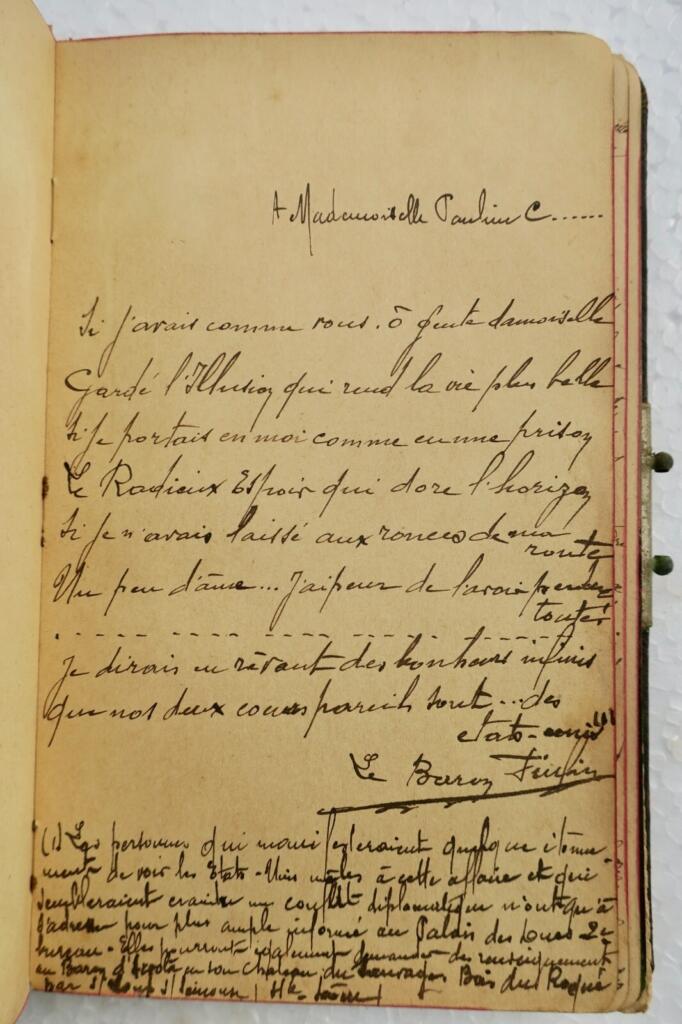 A Mademoiselle Pauline C......
Si j'avais comme vous. ô gente damoiselle
Gardé l'Illusion qui rend la vie plus belle
Si je portais en moi comme en une prison
Le Radieux Espoir qui dore l'horizon
Si je n'avais laissé aux ronces de ma
route
Un peu d'âme... J'ai peur de l'avoir perdue
toute!
Je dirais en rêvant des bonheurs infinis
que nos deux coeurs pareils sont... des
etats-unis (1)
Le Baron
(1) Les personnes qui manifesteraient quelque étonne
ment de voir les Etats-Unis mêlés à cette affaire et qui
sembleraient craindre un conflit diplomatique n'ont qu'à
s'adresser pour plus ample informé au Palais des Ducs 2e
bureau - Elles pourront également demander des renseignements
au Baron en son Chateau du sauvages Bois du Roqué
par